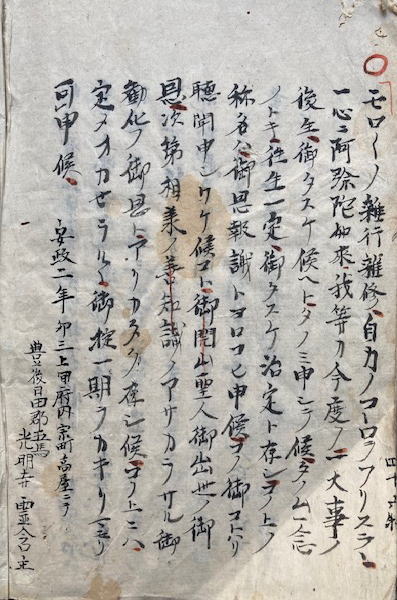 モロ〱ノ雑行雑修自力ノコヽロヲフリステヽ
一心ニ阿弥陀如来我等カ今度ノ一大事ノ
後生御タスケ候ヘトタノミ申シテ候タノム一念
ノトキ往生一定御タスケ治定ト存シコノ上ノ
称名ハ御恩報謝トヨロコヒ申候コノ御コトハリ
聴聞申シワケ候コト御開山聖人御出世ノ御
恩次第相承ノ善知識ノアサカラサル御
勧化ノ御恩トアリカタク存シ候コノ上ニハ
定メオカセラルヽ御掟一期ヲカキリマモリ
可申候
安政二年卯三上甲府内京町高屋ニテ
豊後日田郡五馬
光明寺